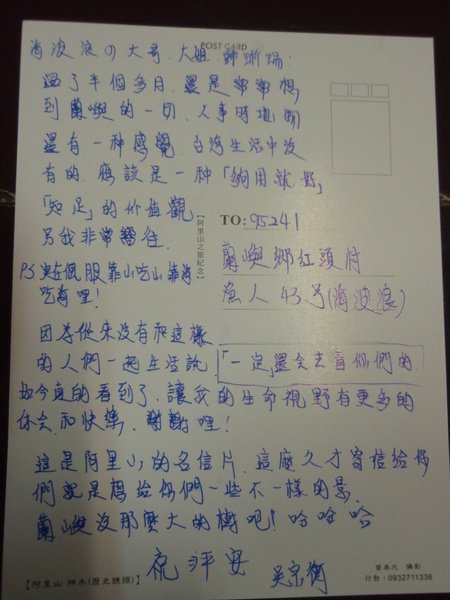 POST CARD
海波浪の大哥.大姐.
過了半個多月.還是常常想
到蘭嶼的一切.人事時地物
還有一种感覺.台灣生活中沒
有的.應該是一种「夠用就好」
「知足」的价值觀
另我非常嚮往.
P.S 實在佩服靠山吃山靠海
吃海哩!
【阿里山之旅紀念】
TO: 95241
蘭嶼鄉紅頭村
漁人 43号(海波浪)
因為從來沒有和這樣
的人們一起生活說
「一定還會去看你們的
如今真的看到了.讓我的生命視野有更多的
体会和快樂.謝謝哩!
這是阿里山的名信片.這麼久才寄信給你
們就是想給你們一些不一樣的景.
蘭嶼沒那麼大的樹吧!哈哈哈
祝 平安
吳宗衡
【阿里山 神木(歷史鏡頭)】
曾泰元 攝影
行動:0932711336